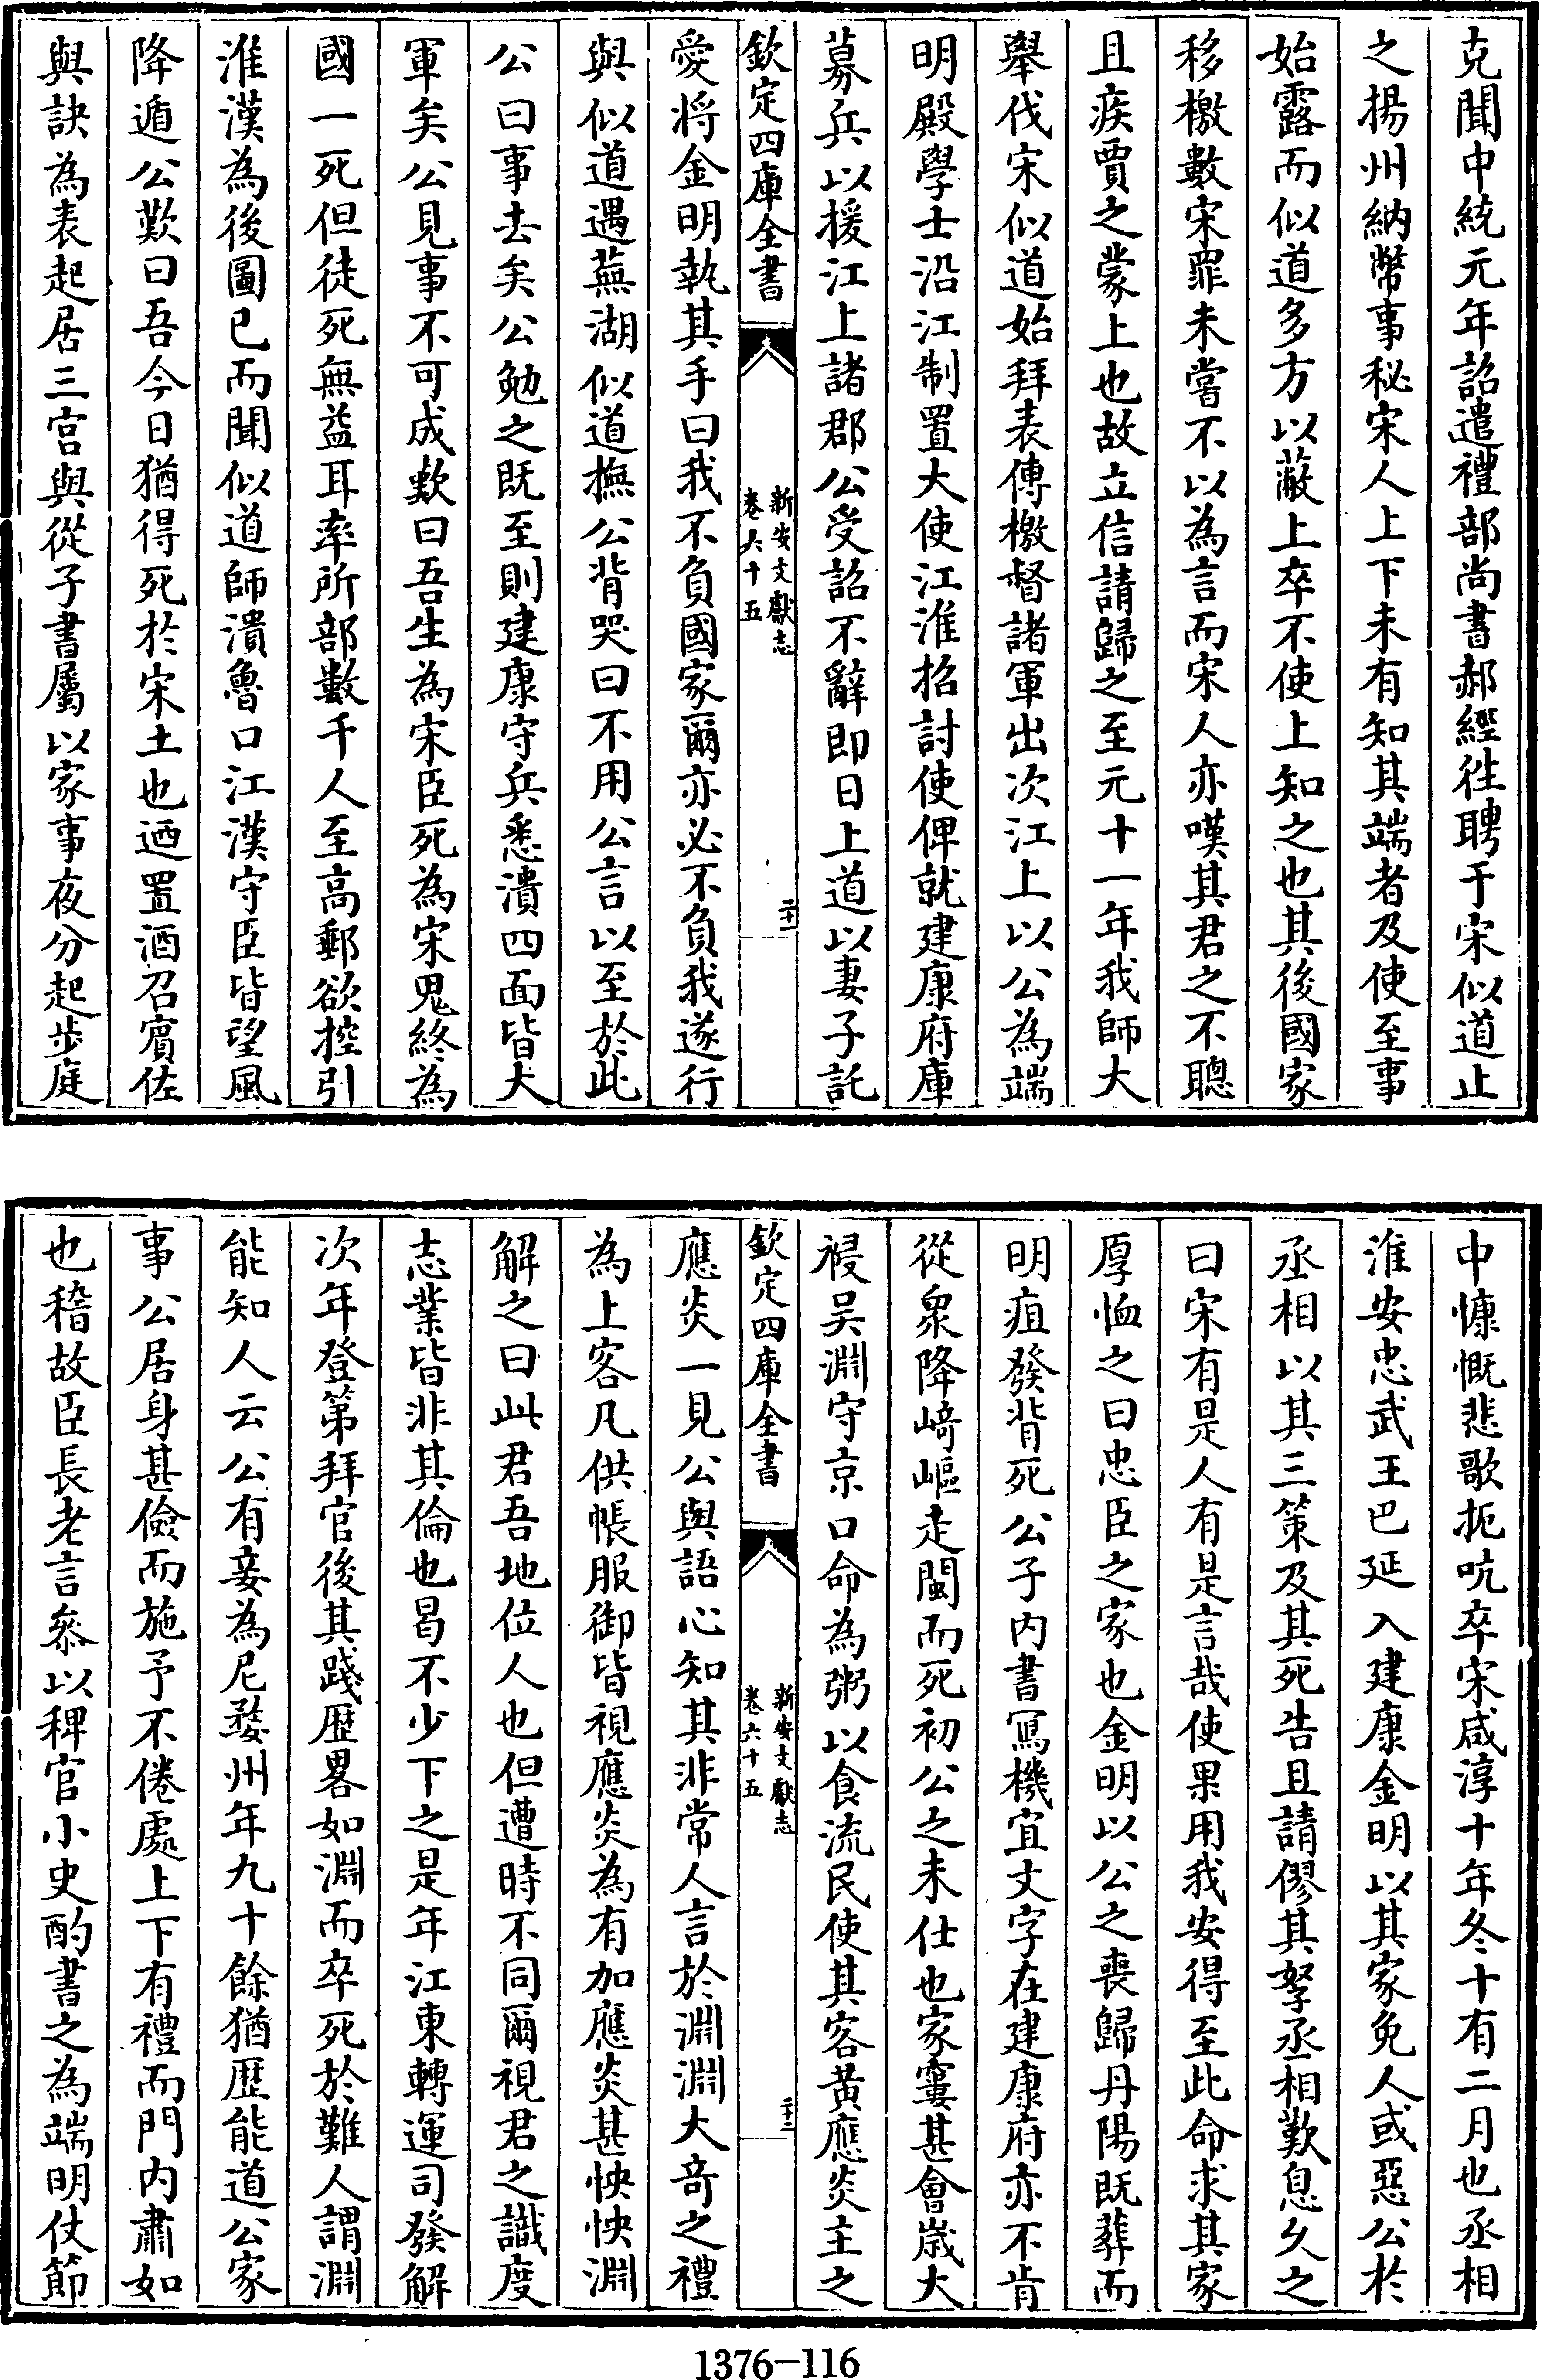 克聞中統元年詔遣禮部尚書郝經徃聘于宋似道止
之揚州納幣事秘宋人上下未有知其端者及使至事
始露而似道多方以蔽上卒不使上知之也其後國家
移檄數宋罪未嘗不以為言而宋人亦嘆其君之不聰
且疾賈之蒙上也故立信請歸之至元十一年我師大
舉伐宋似道始拜表傳檄督諸軍出次江上以公為端
明殿學士沿江制置大使江淮招討使俾就建康府庫
募兵以援江上諸郡公受詔不辭即日上道以妻子託
欽定四庫全書
新安文獻志
卷六十五
二十一
愛將金明執其手曰我不負國家爾亦必不負我遂行
與似道遇蕪湖似道撫公背哭曰不用公言以至於此
公曰事去矣公勉之既至則建康守兵悉潰四面皆大
軍矣公見事不可成歎曰吾生為宋臣死為宋鬼終為
國一死但徒死無益耳率所部數千人至高郵欲控引
淮漢為後圖已而聞似道師潰魯口江漢守臣皆望風
降遁公歎曰吾今日猶得死於宋土也迺置酒召賓佐
與訣為表起居三宫與從子書屬以家事夜分起步庭
中慷慨悲歌扼吭卒宋咸淳十年冬十有二月也丞相
淮安忠武王巴延入建康金明以其家免人或惡公於
丞相以其三策及其死告且請僇其孥丞相歎息久之
曰宋有是人有是言哉使果用我安得至此命求其家
厚恤之曰忠臣之家也金明以公之喪歸丹陽既葬而
明疽發背死公子内書寫機宜文字在建康府亦不肯
從衆降﨑嶇走閩而死初公之未仕也家窶甚會歲大
祲吴淵守京口命為粥以食流民使其客黄應炎主之
欽定四庫全書
新安文獻志
卷六十五
二十二
應炎一見公與語心知其非常人言於淵淵大奇之禮
為上客凡供帳服御皆視應炎為有加應炎甚怏怏淵
解之曰此君吾地位人也但遭時不同爾視君之識度
志業皆非其倫也曷不少下之是年江東轉運司發解
次年登第拜官後其踐歴畧如淵而卒死於難人謂淵
能知人云公有妾為尼婺州年九十餘猶歴能道公家
事公居身甚儉而施予不倦處上下有禮而門内肅如
也稽故臣長老言叅以稗官小史酌書之為端明仗節
1376—116